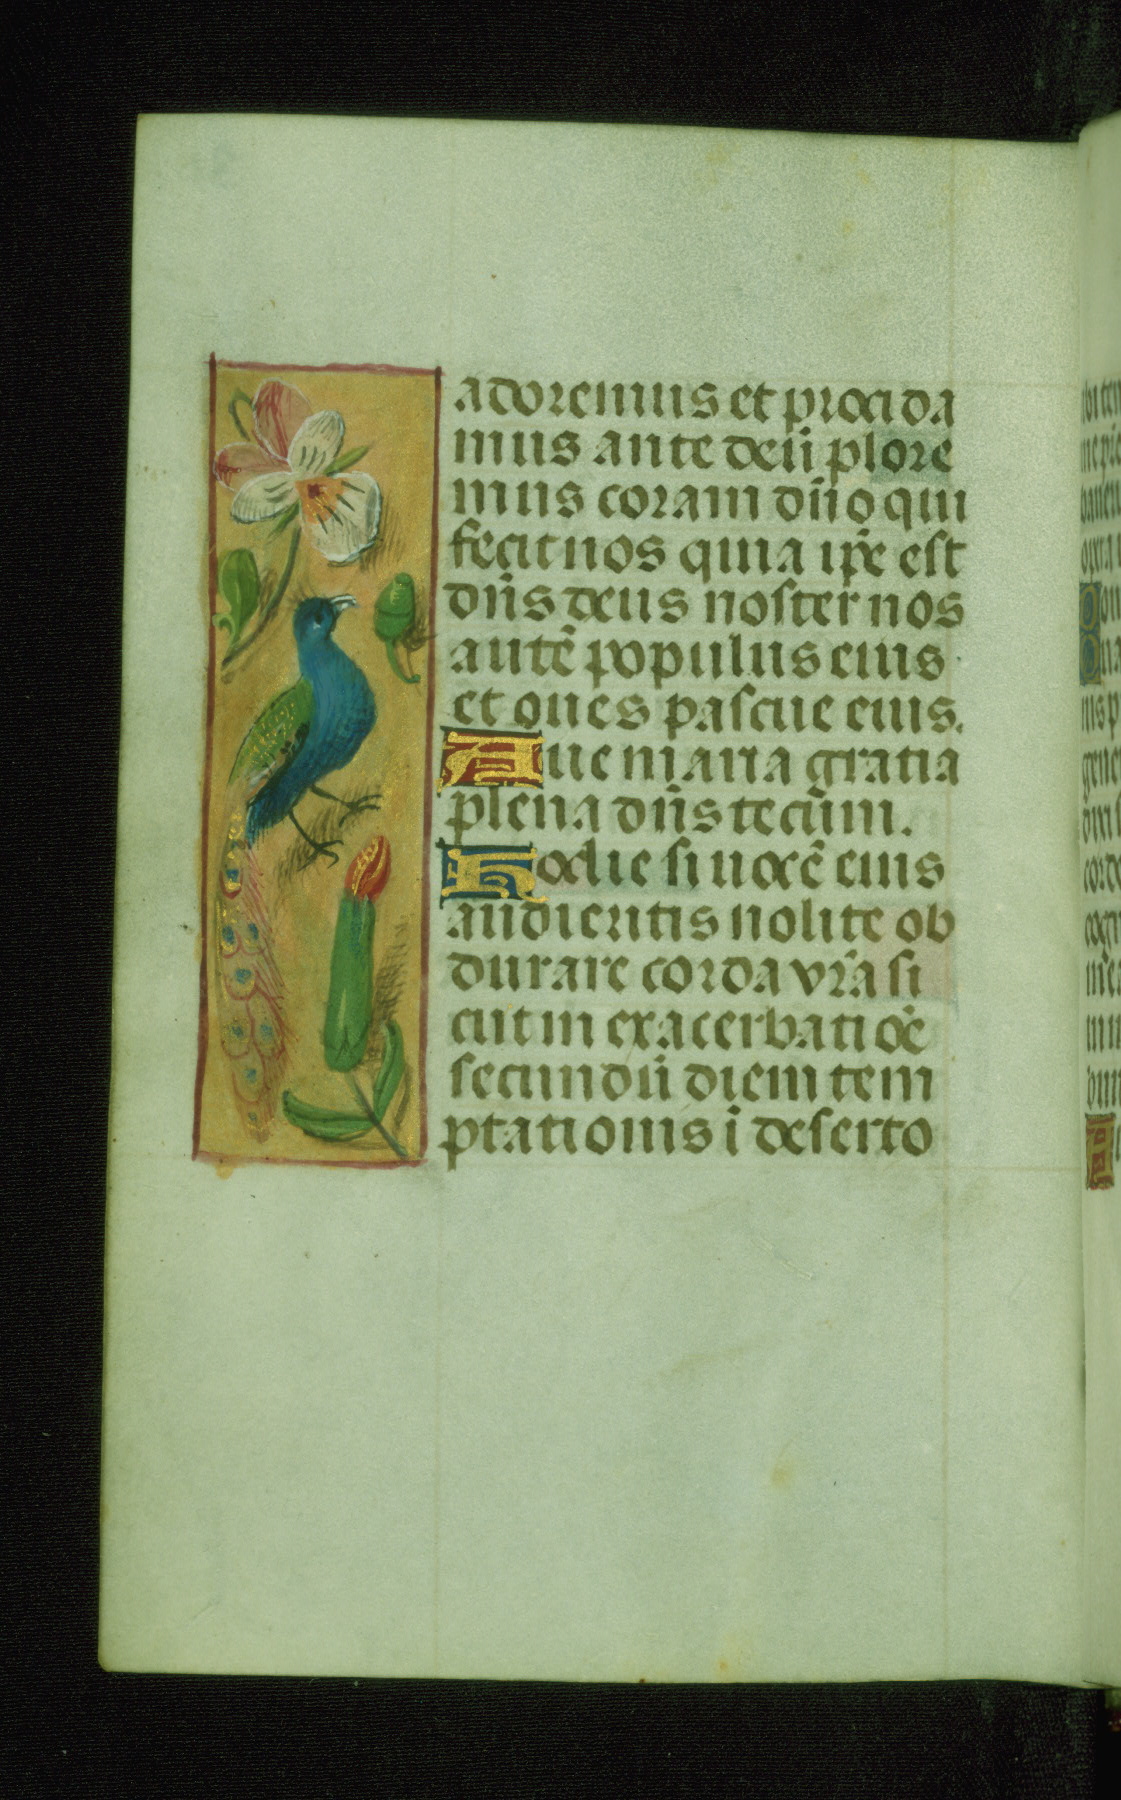 adoremus et procida
mus ante deū plore
mus coram dn̄o qui
fecit nos quia ip̄e est
dn̄s deus noster nos
autē populus eius
et oues pascue eius.
Aue maria gratia
plena dn̄s tecūm.
Hodie si uocē eius
audieritis nolite ob
durare corda vr̄a si
cut in exacerbatiōe
secundū diem tem
ptationis ī deserto